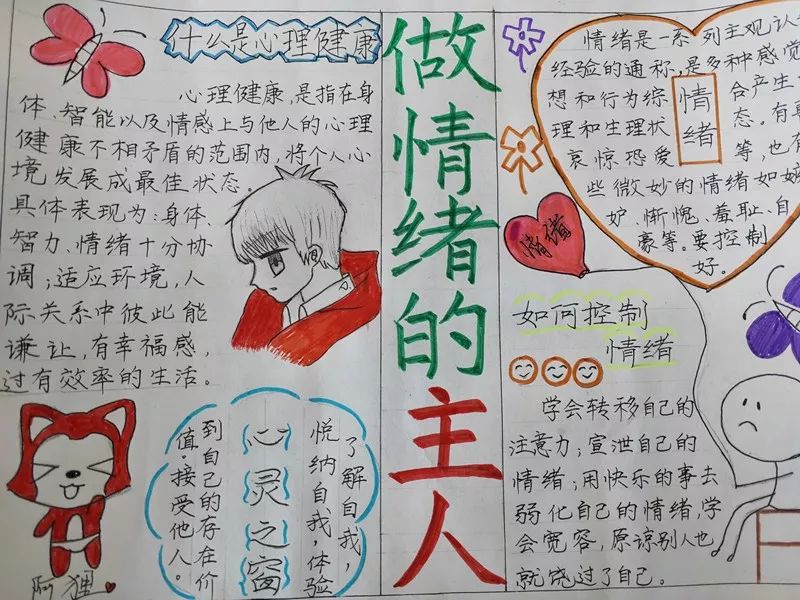 什么是心理健康
心理健康,是指在身
体、智能以及情感上与他人的心理
健康不相矛盾的范围内,将个人心
境发展成最佳状态。
具体表现为:身体、
智力、情绪十分协
调;适应环境,人
际关系中彼此能
谦让,有幸福感,
过有效率的生活。
阿狸
心灵之窗
了解自我,
悦纳自我,体验
到自己的存在价
值。接受他人。
做情绪的主人
情绪是一系列主观认
经验的通称,是多种感觉
想和行为综合产生
理和生理状态。有喜
哀惊恐爱等,也有
些微妙的情绪如嫉
妒、惭愧、羞耻、自
豪等。要控制
好。
情绪
情绪
如何控制
情绪
学会转移自己的
注意力;宣泄自己的
情绪;用快乐的事去
弱化自己的情绪,学
会宽容,原谅别人也
就饶过了自己。